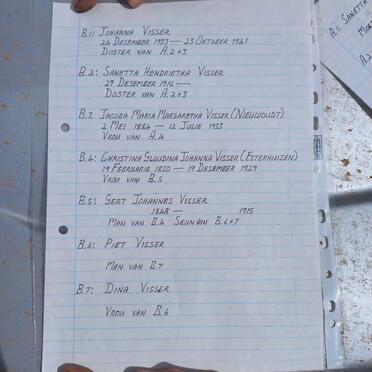 B.1: JOHANNA VISSER
24 DESEMBER 1933 — 23 OKTOBER 1941
DOGTER VAN A.2+3
B.2: SANETTA HENDRIETHA VISSER
29 DESEMBER 1916 —
DOGTER VAN A.2+3
B.3. JACOBA MARIA MARGARETHA VISSER (NIEUWOUDT)
2 MEI 1884 — 12 JULIE 1933
VROU VAN A.4
B.4: CHRISTINA GLOUDINA JOHANNA VISSER (ESTERHUIZEN)
19 FEBRUARIE 1850 — 19 DESEMBER 1929
VROU VAN B.5
B.5: GERT JOHANNES VISSER
1848 — 1915
MAN VAN B.4 SEUN VAN B.6+7
B.6: PIET VISSER
MAN VAN B.7
B.7: DINA VISSER
VROU VAN B.6
A.1. SANETTA
A.2